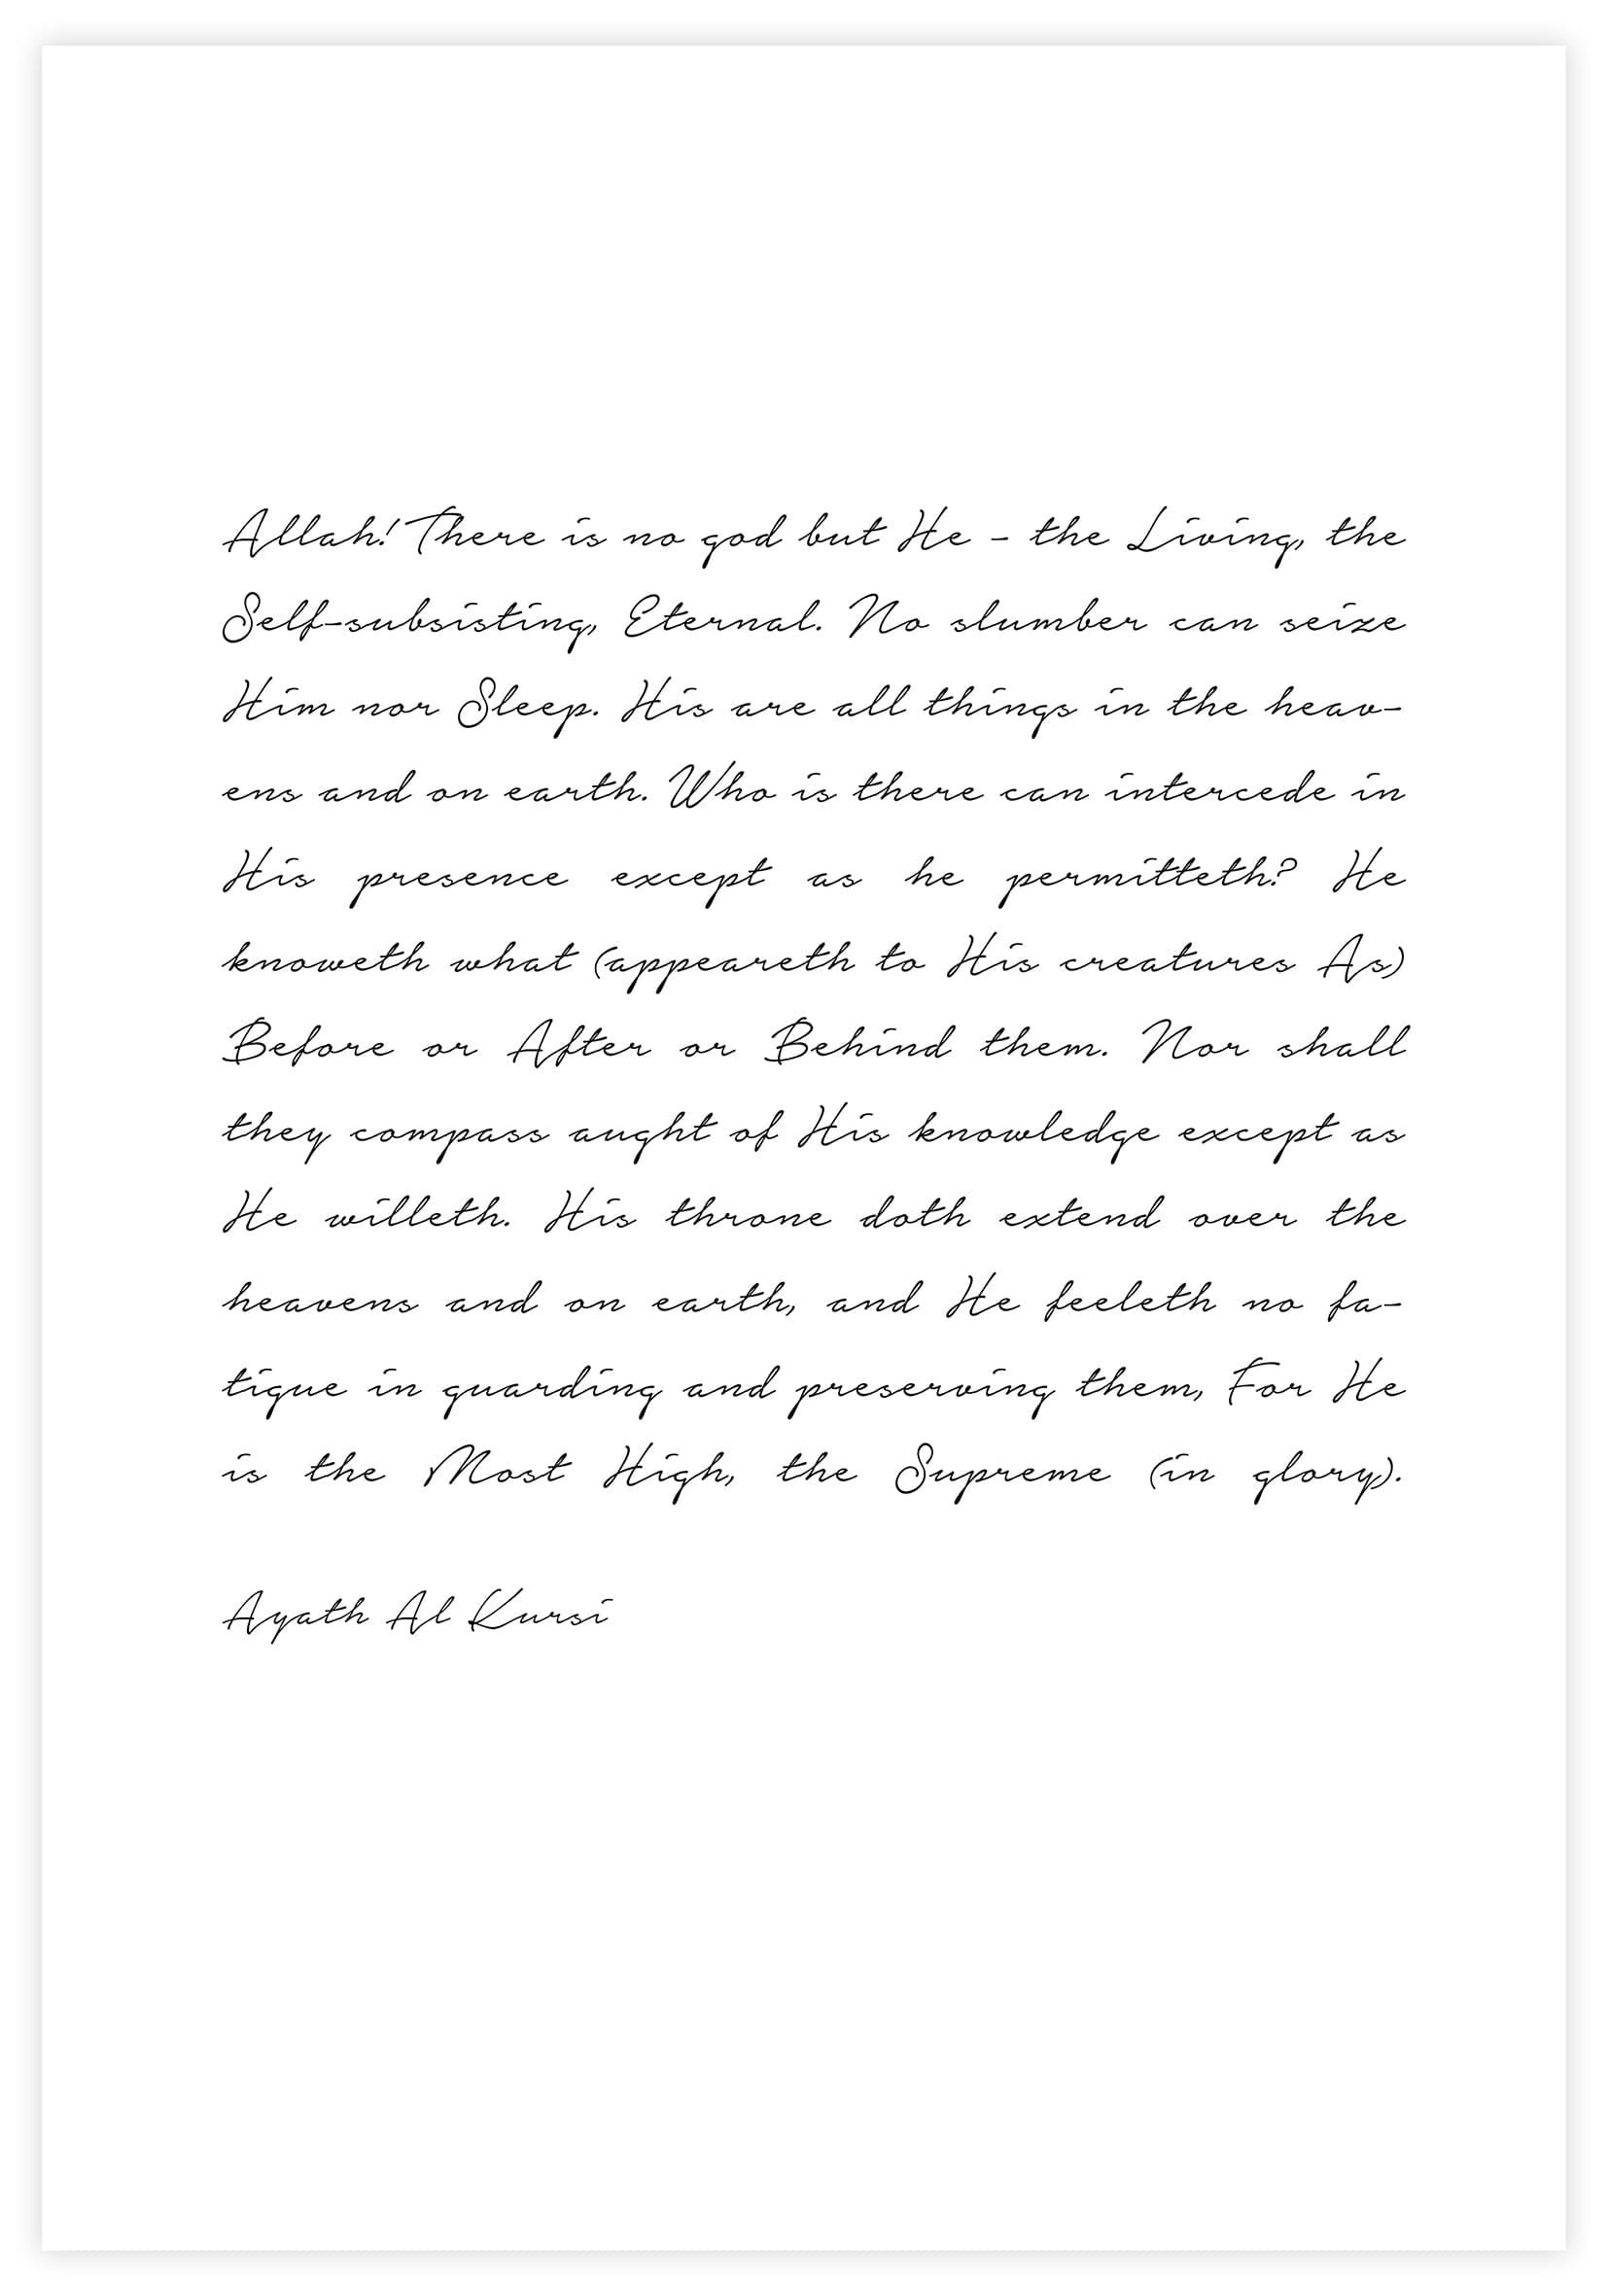 Allah! There is no god but He - the Living, the
Self-subsisting, Eternal. No slumber can seize
Him nor Sleep. His are all things in the heav-
ens and on earth. Who is there can intercede in
His presence except as he permitteth? He
knoweth what (appeareth to His creatures As)
Before or After or Behind them. Nor shall
they compass aught of His knowledge except as
He willeth. His throne doth extend over the
heavens and on earth, and He feeleth no fa-
tigue in guarding and preserving them, For He
is the Most High, the Supreme (in glory).
Ayath Al Kursi